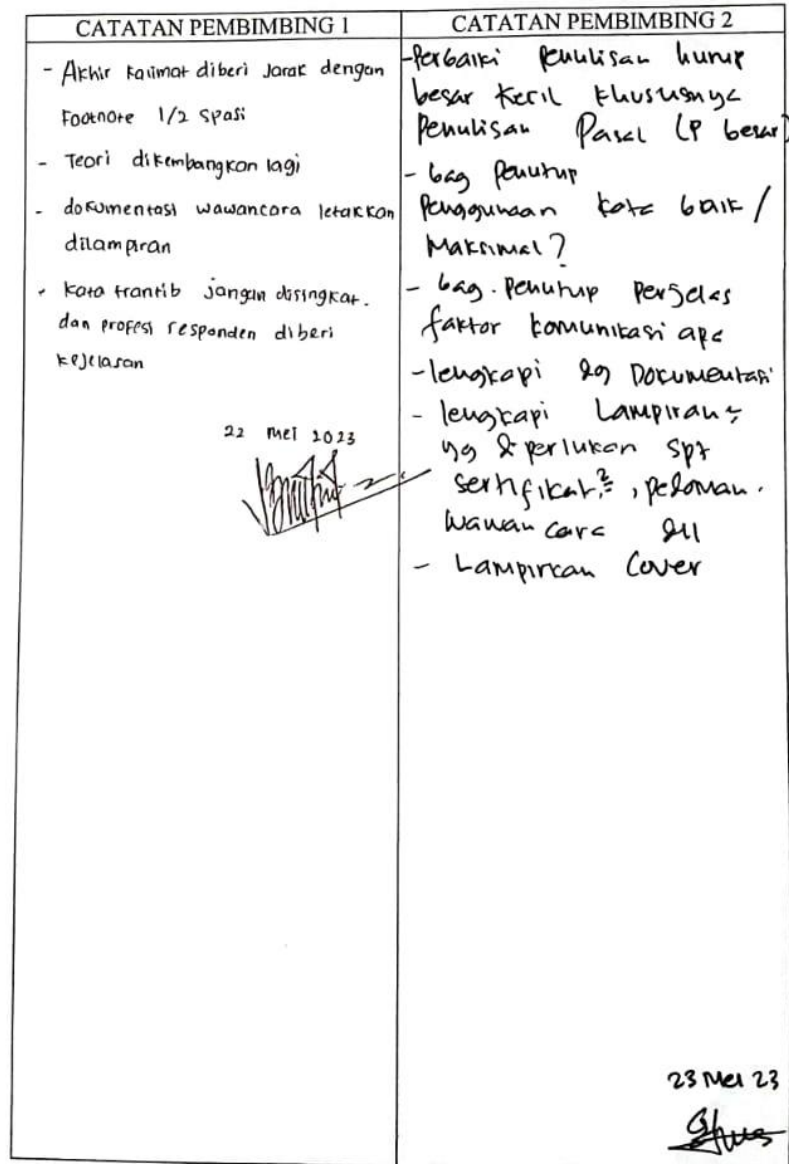 CATATAN PEMBIMBING 1
- Akhir kalimat diberi Jarak dengan
Footnote 1/2 spasi
- Teori dikembangkan lagi
- dokumentasi wawancara letakkan
dilampiran
- Kata trantib jangan disingkat.
dan profesi responden diberi
kejelasan
22 mei 2023
CATATAN PEMBIMBING 2
- Perbaiki Penulisan hurup
besar kecil khususnya
Penulisan Pasal (P besar)
- bag Penutup
Penggunaan kata baik /
Maksimal?
- bag. Penutup Perjelas
faktor komunikasi apa
- lengkapi dg Dokumentasi
- lengkapi Lampiran2
yg diperlukan spt
sertifikat2, pedoman.
wawancara dll
- Lampirkan Cover
23 Mei 23